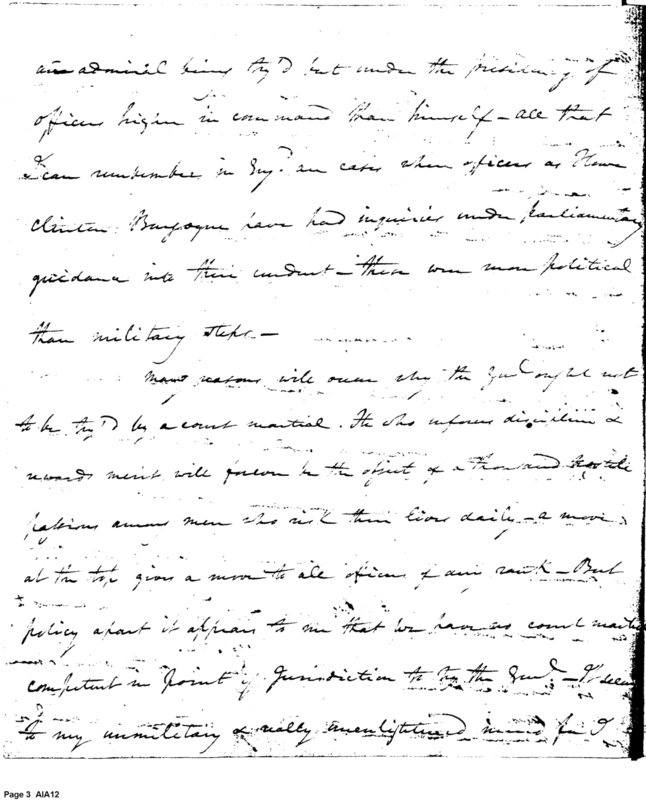 an admiral being try'd but under the presidency of
officers higher in command than himself – all that
I can remember in Eng.d are cases when officers as Howe
Clinton Burgoyne have had inquiries under parliamentary
guidance into their conduct – these were more political
than military steps. –
Many reasons will occur why the Gen.l ought not
to be try'd by a court martial. He who inforces discipline &
rewards merit will forever be the object of a thousand hostile
passions among men who risk their lives daily – a move
at the top gives a move to all officers of rank – But
policy apart it appears to me that we have no court martial
competent in point of Jurisdiction to try the Gen.l –
to my unmilitary & really unenlightened mind for I
Page 3 AIA12